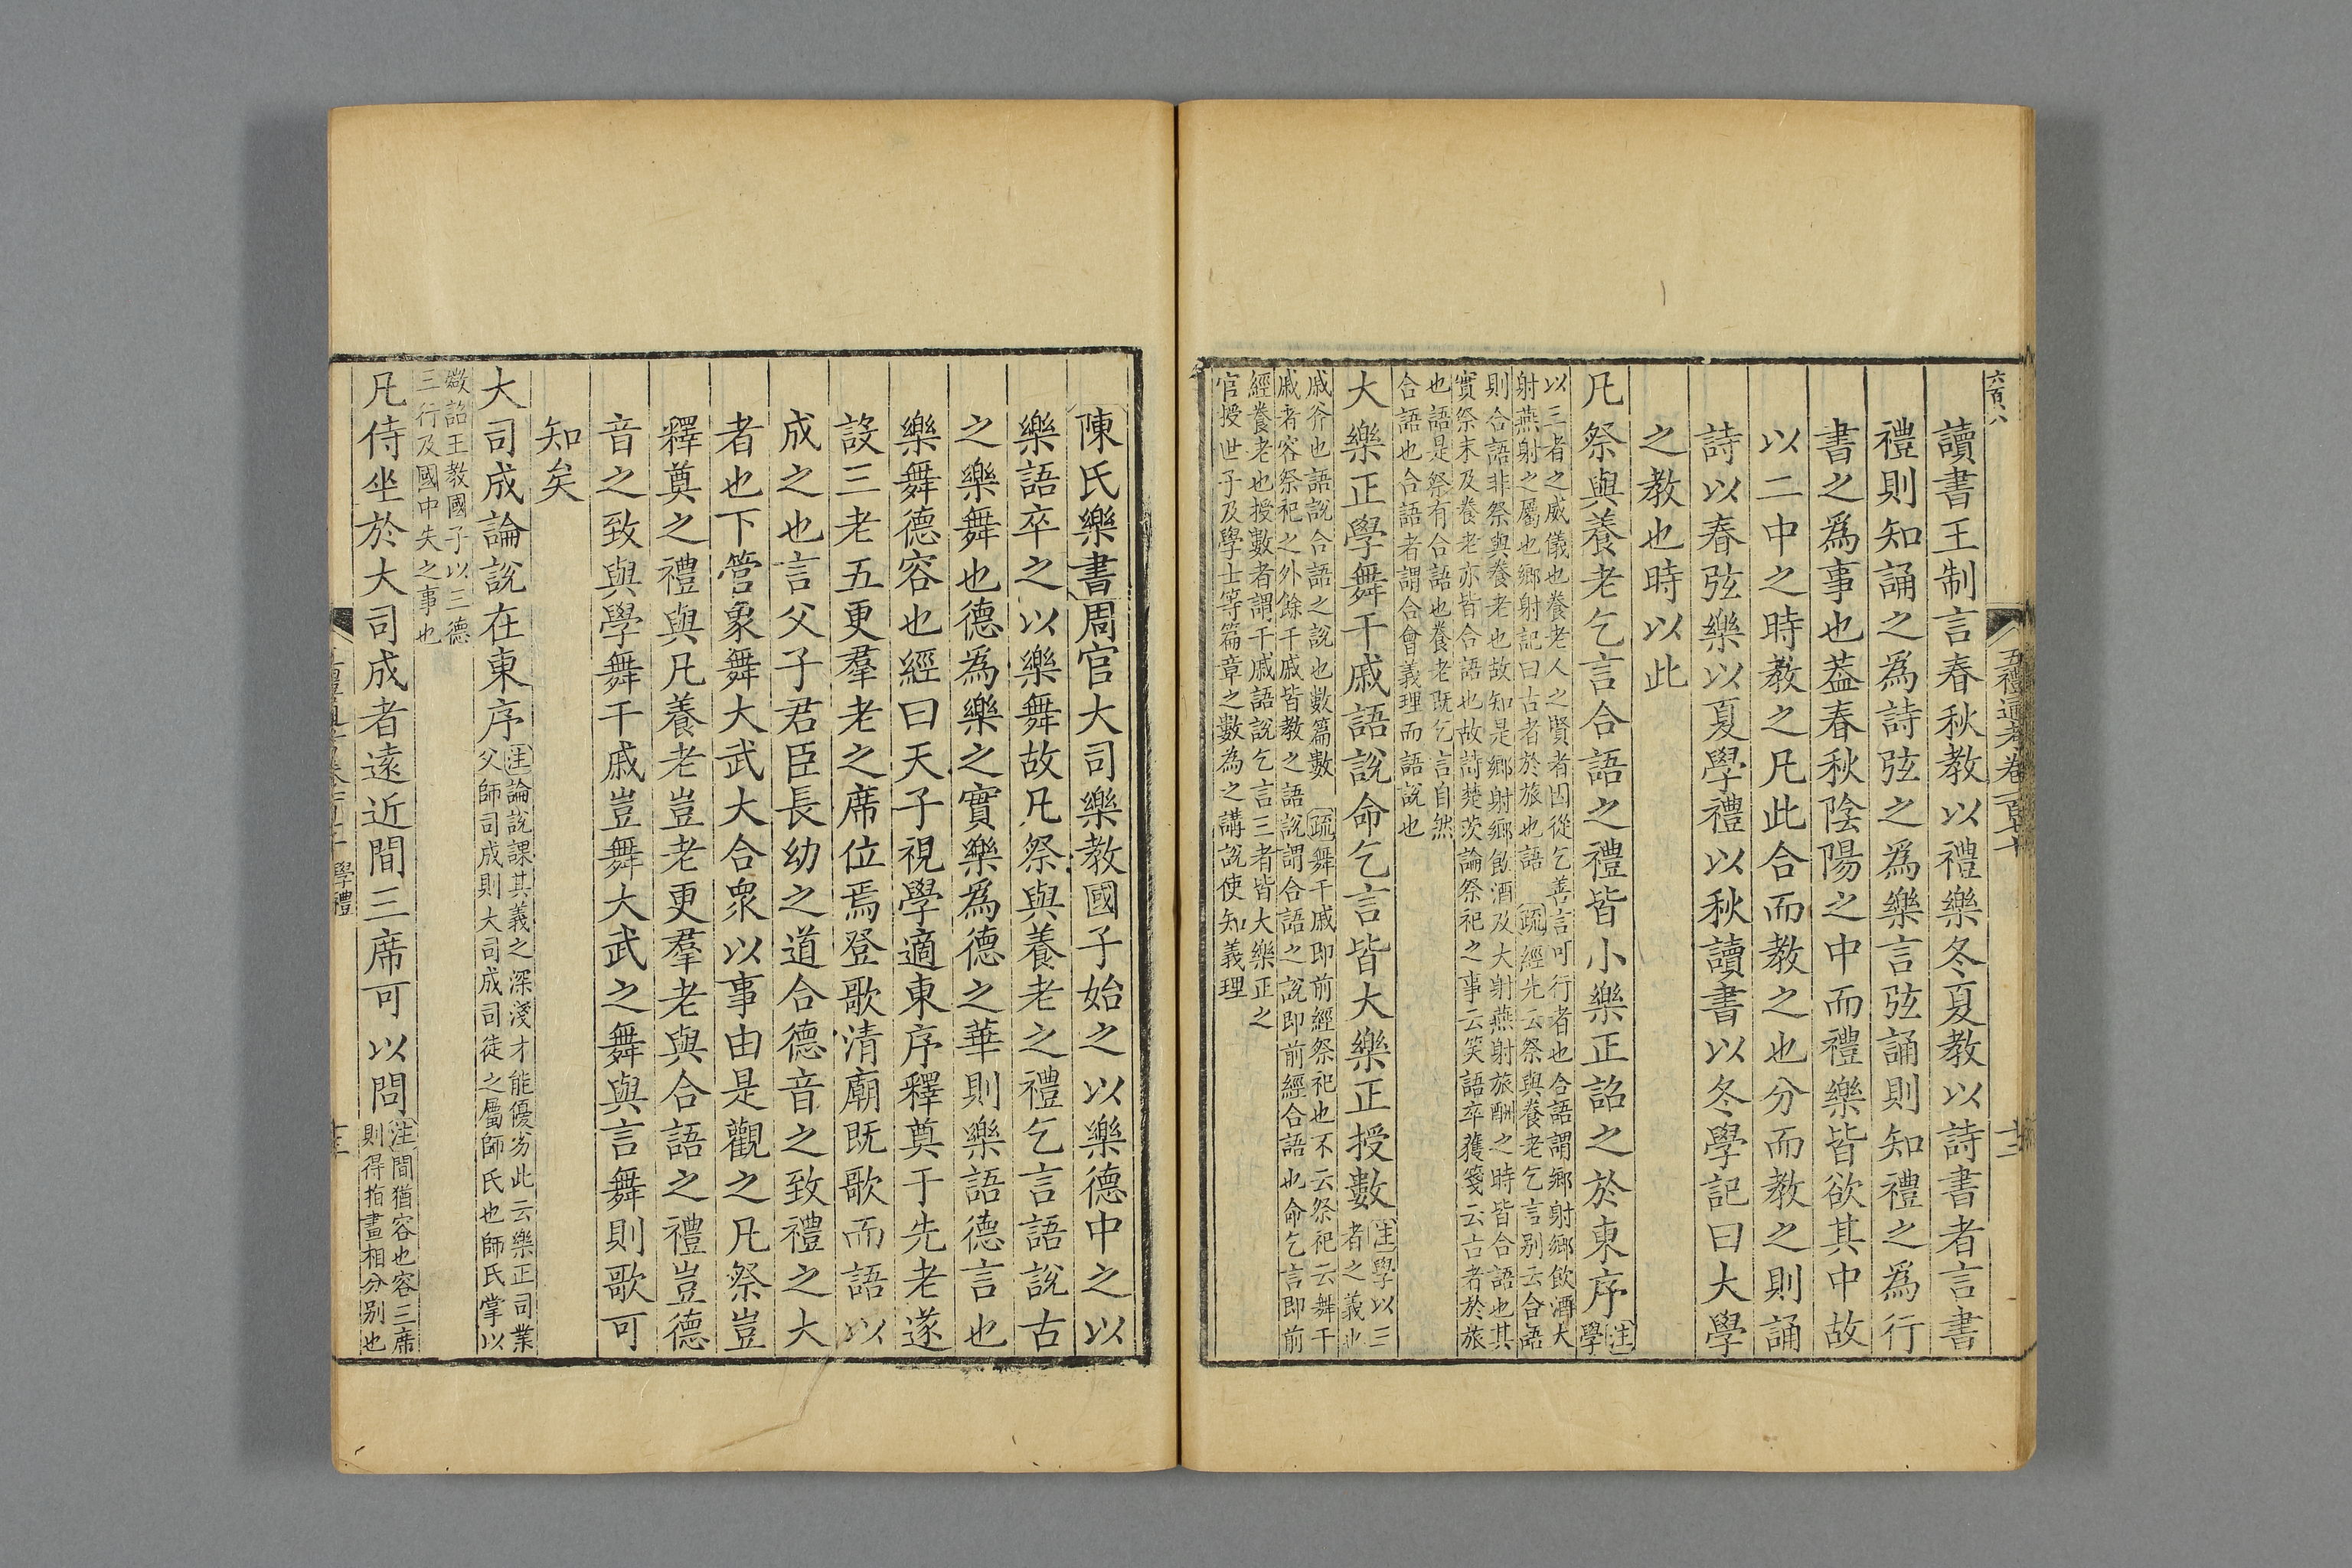 六百八
五禮通考卷一百七十
十二
讀書王制言春秋教以禮樂冬夏教以詩書者言書
禮則知誦之爲詩弦之爲樂言弦誦則知禮之爲行
書之爲事也葢春秋陰陽之中而禮樂皆欲其中故
以二中之時教之凡此合而教之也分而教之則誦
詩以春弦樂以夏學禮以秋讀書以冬學記曰大學
之教也時以此
凡祭與養老乞言合語之禮皆小樂正詔之於東序注學
以三者之威儀也養老人之賢者因從乞善言可行者也合語謂鄉射鄉飲酒大
射燕射之屬也鄉射記曰古者於旅也語 疏經先云祭與養老乞言别云合語
則合語非祭與養老也故知是鄉射鄉飲酒及大射燕射旅酬之時皆合語也其
實祭末及養老亦皆合語也故詩楚茨論祭祀之事云笑語卒獲箋云古者於旅
也語是祭有合語也養老既乞言自然
合語也合語者謂合會義理而語說也
大樂正學舞干戚語說命乞言皆大樂正授數注學以三者之義也
戚斧也語說合語之說也數篇數 疏舞干戚即前經祭祀也不云祭祀云舞干
戚者容祭祀之外餘干戚皆教之語說謂合語之說即前經合語也命乞言即前
經養老也授數者謂干戚語說乞言三者皆大樂正之
官授世子及學士等篇章之數為之講說使知義理
陳氏樂書周官大司樂教國子始之以樂德中之以
樂語卒之以樂舞故凡祭與養老之禮乞言語說古
之樂舞也德爲樂之實樂爲德之華則樂語德言也
樂舞德容也經曰天子視學適東序釋奠于先老遂
設三老五更羣老之席位焉登歌清廟既歌而語以
成之也言父子君臣長幼之道合德音之致禮之大
者也下管象舞大武大合衆以事由是觀之凡祭豈
釋奠之禮與凡養老豈老更羣老與合語之禮豈德
音之致與學舞干戚豈舞大武之舞與言舞則歌可
知矣
大司成論說在東序注論說課其義之深淺才能優劣此云樂正司業
父師司成則大司成司徒之屬師氏也師氏掌以
媺詔王教國子以三德
三行及國中失之事也
凡侍坐於大司成者遠近間三席可以問注間猶容也容三席
則得指畫相分别也
學禮
十三